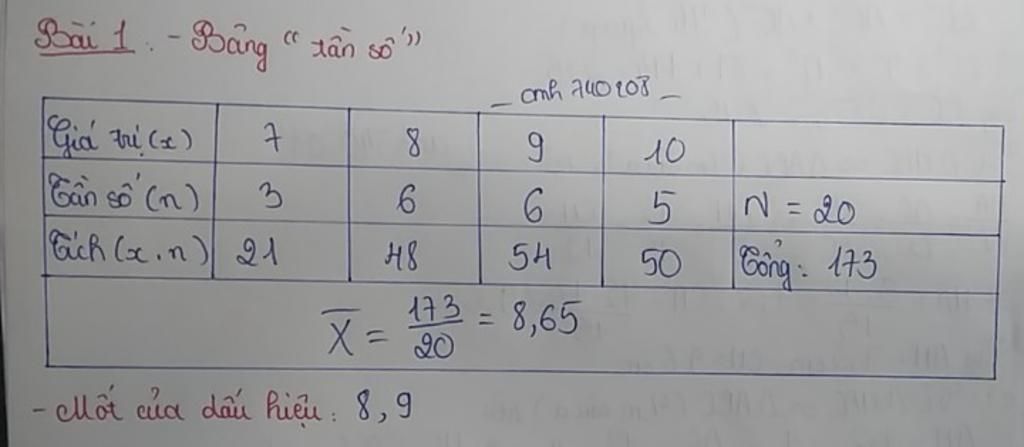 Bài 1. - Bảng "tần số"
_ cmh 740208 _
Giá trị (x) 7 8 9 10
Tần số (n) 3 6 6 5 N = 20
Tích (x.n) 21 48 54 50 Tổng: 173
X̄ = 173/20 = 8,65
- Mốt của dấu hiệu: 8, 9